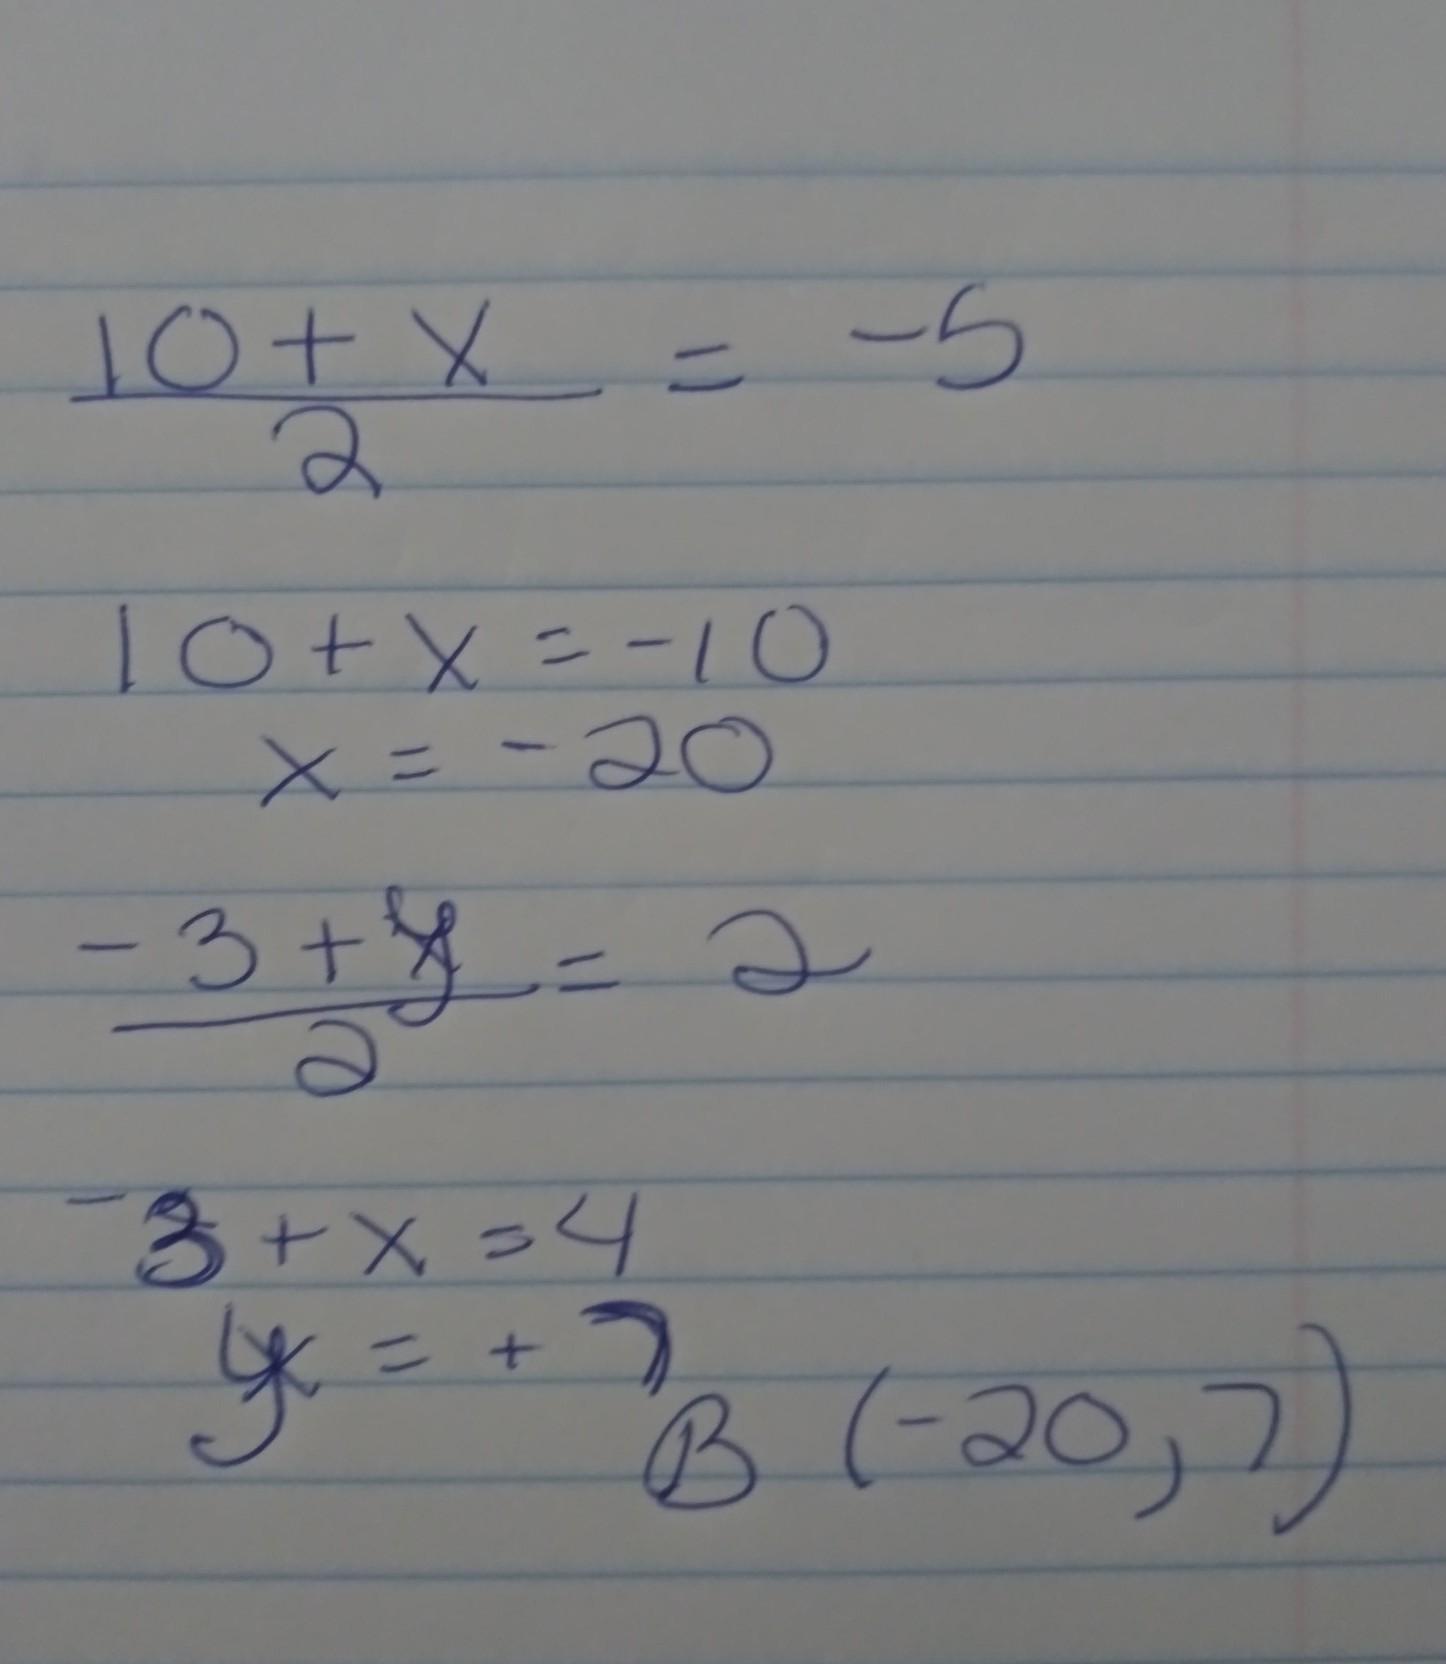 10 + x = -5
2
10 + x = -10
x = -20
-3 + y = 2
2
-3 + x = 4
y = +7
B (-20, 7)